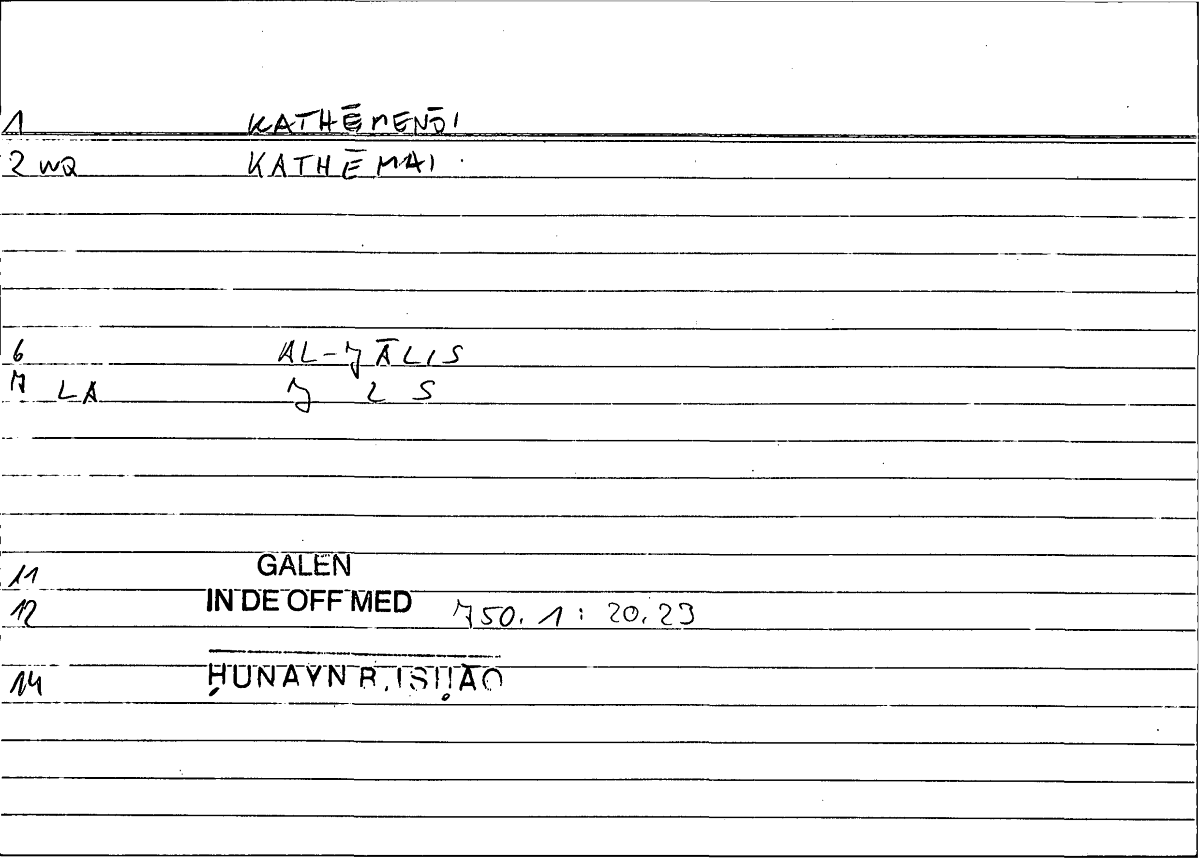 1 KATHĒMENŌI
2 WQ KATHĒMAI
6 AL-JĀLIS
7 LA J L S
11 GALEN
12 IN DE OFF MED 750.1 : 20.23
14 ḤUNAYN B. ISḤĀQ